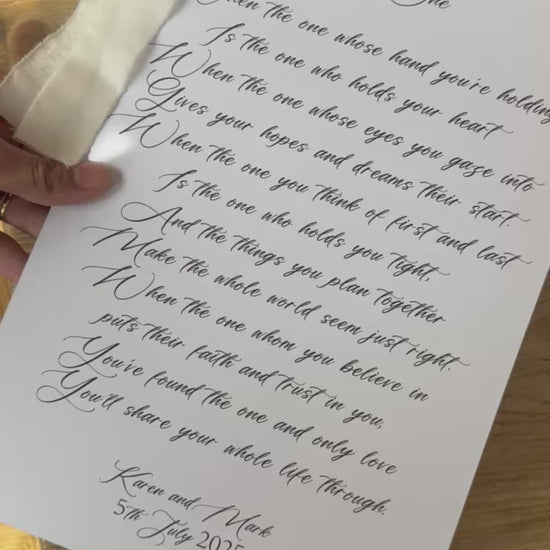 One
When the one whose hand you're holding
Is the one who holds your heart
When the one whose eyes you gaze into
Gives your hopes and dreams their start.
When the one you think of first and last
Is the one who holds you tight,
And the things you plan together
Make the whole world seem just right.
When the one whom you believe in
puts their faith and trust in you,
You've found the one and only love
You'll share your whole life through.
Karen and Mark
5th July 2025